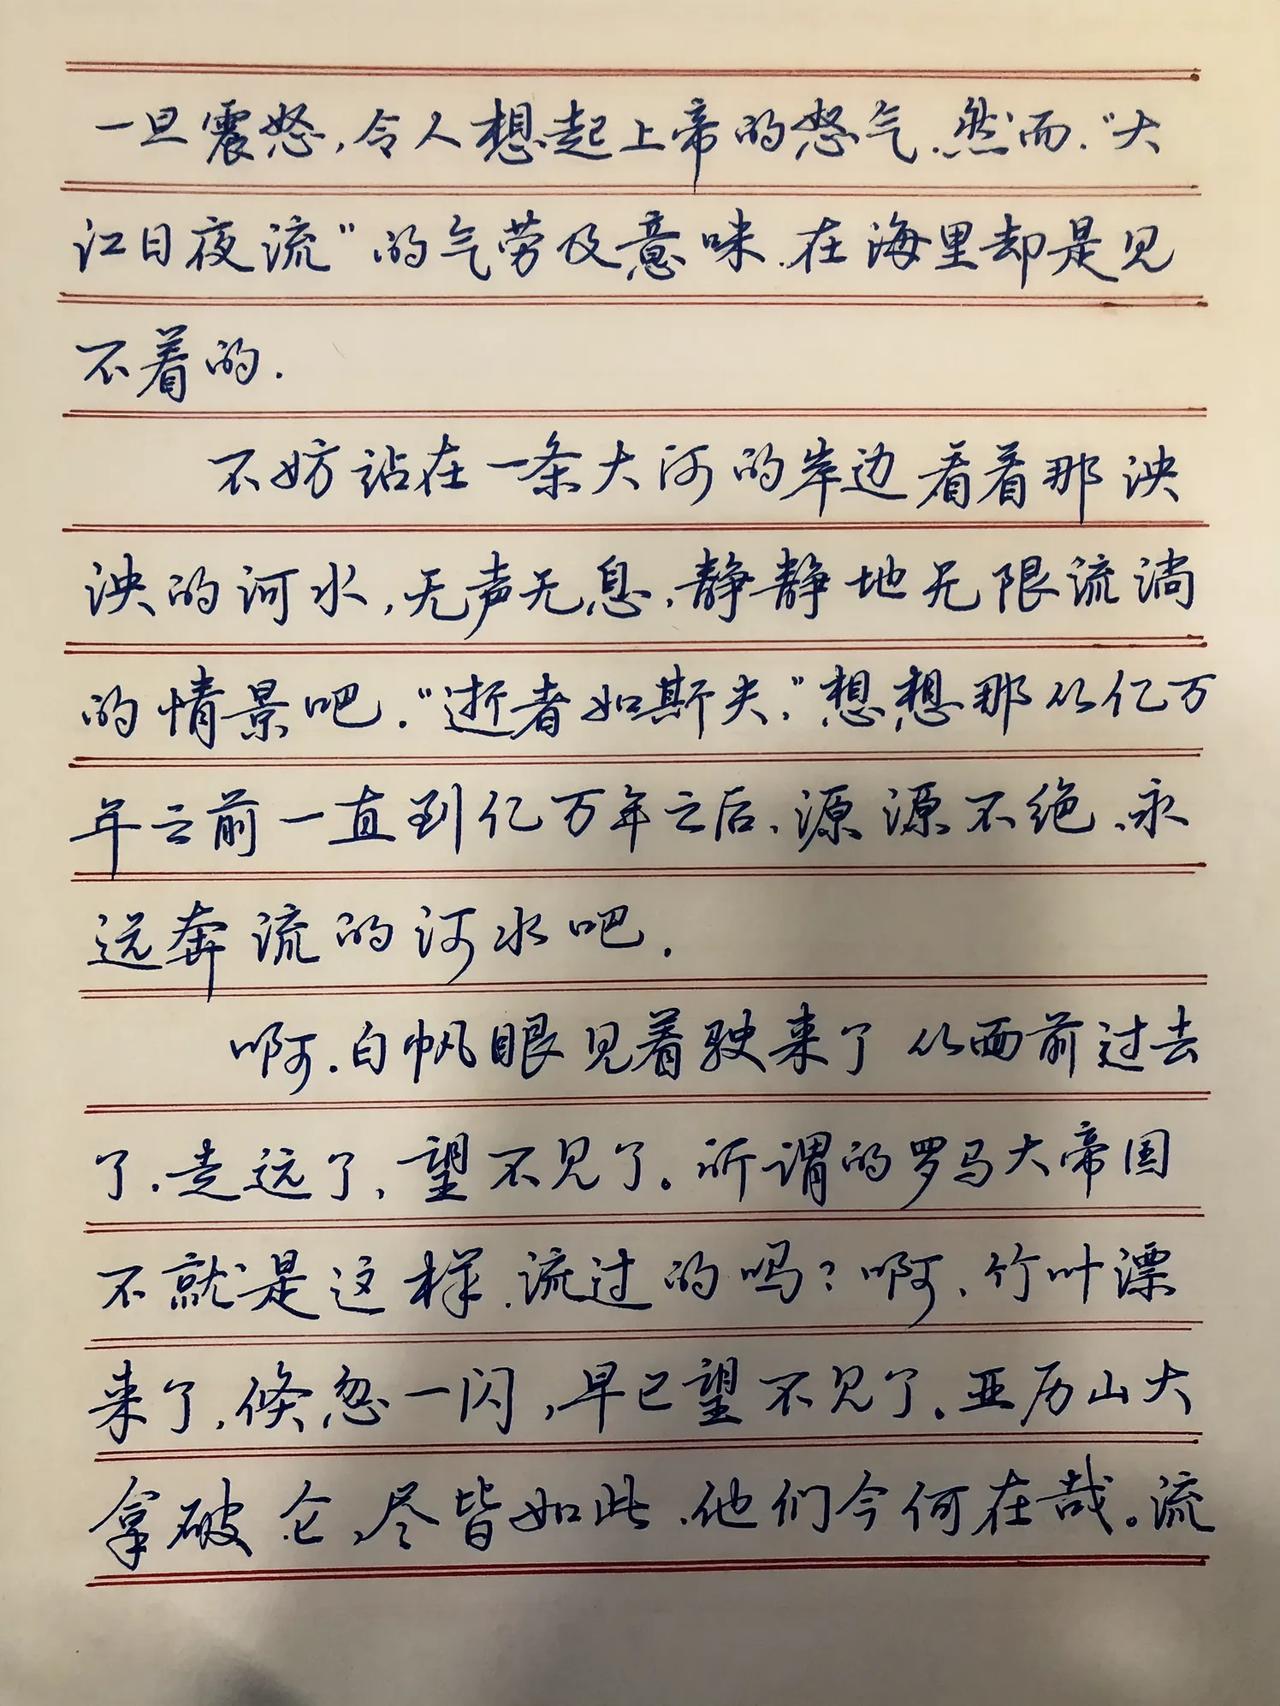 一旦震怒,令人想起上帝的怒气.然而."大
江日夜流"的气势及意味.在海里却是见
不着的.
不妨站在一条大河的岸边看着那泱
泱的河水,无声无息,静静地无限流淌
的情景吧."逝者如斯夫,"想想那从亿万
年之前一直到亿万年之后、源源不绝、永
远奔流的河水吧.
啊.白帆眼见着驶来了 从面前过去
了.走远了、望不见了。所谓的罗马大帝国
不就是这样.流过的吗?啊、竹叶漂
来了,倏忽一闪,早已望不见了。亚历山大
拿破仑,尽皆如此.他们今何在哉。流